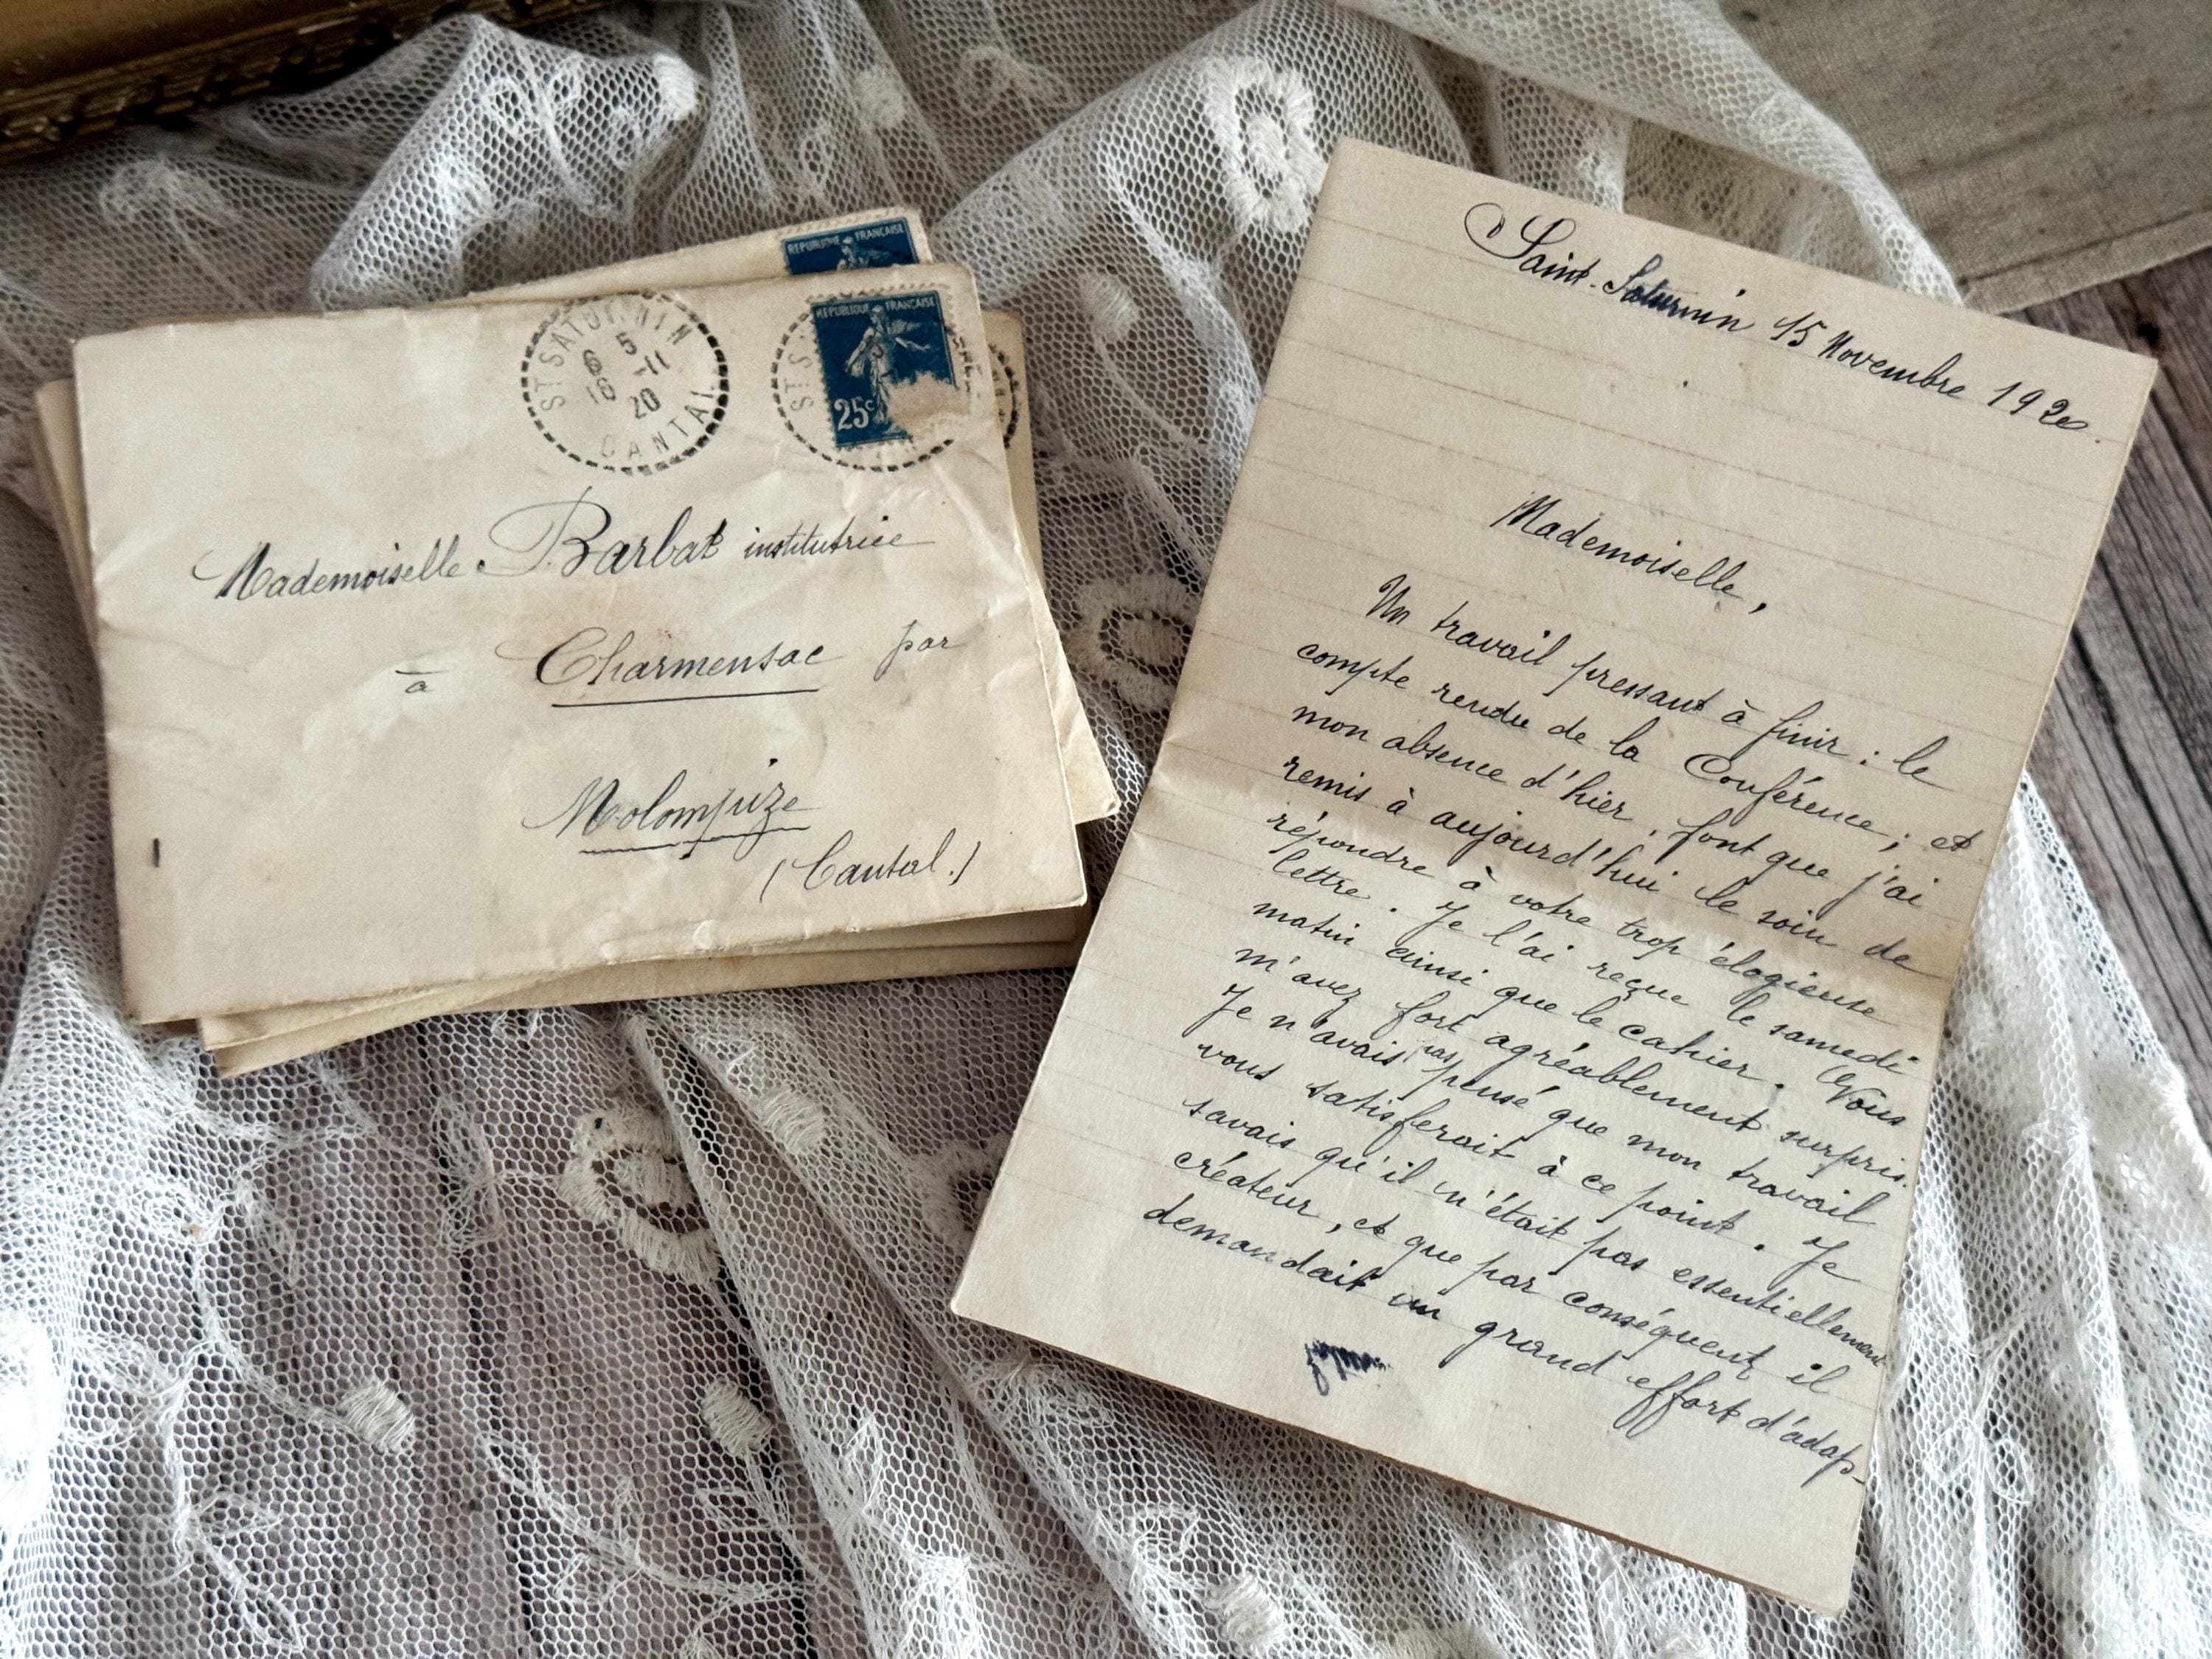 RÉPUBLIQUE FRANÇAISE
REPUBLIQUE FRANÇAISE
25c
ST SATURNIN
5-11
6
16
20
CANTAL
ST S
Mademoiselle Barbat institutrice
à Charmensac par
Molompize
(Cantal.)
Saint-Saturnin 15 Novembre 1920.
Mademoiselle,
Un travail pressant à finir : le
compte rendu de la Conférence ; et
mon absence d'hier, font que j'ai
remis à aujourd'hui le soin de
répondre à votre trop élogieuse
lettre. Je l'ai reçue le samedi
matin ainsi que le cahier. Vous
m'avez fort agréablement surpris.
Je n'avais pas pensé que mon travail
vous satisferait à ce point. Je
savais qu'il n'était pas essentiellement
créateur, et que par conséquent il
demandait un grand effort d'adap-